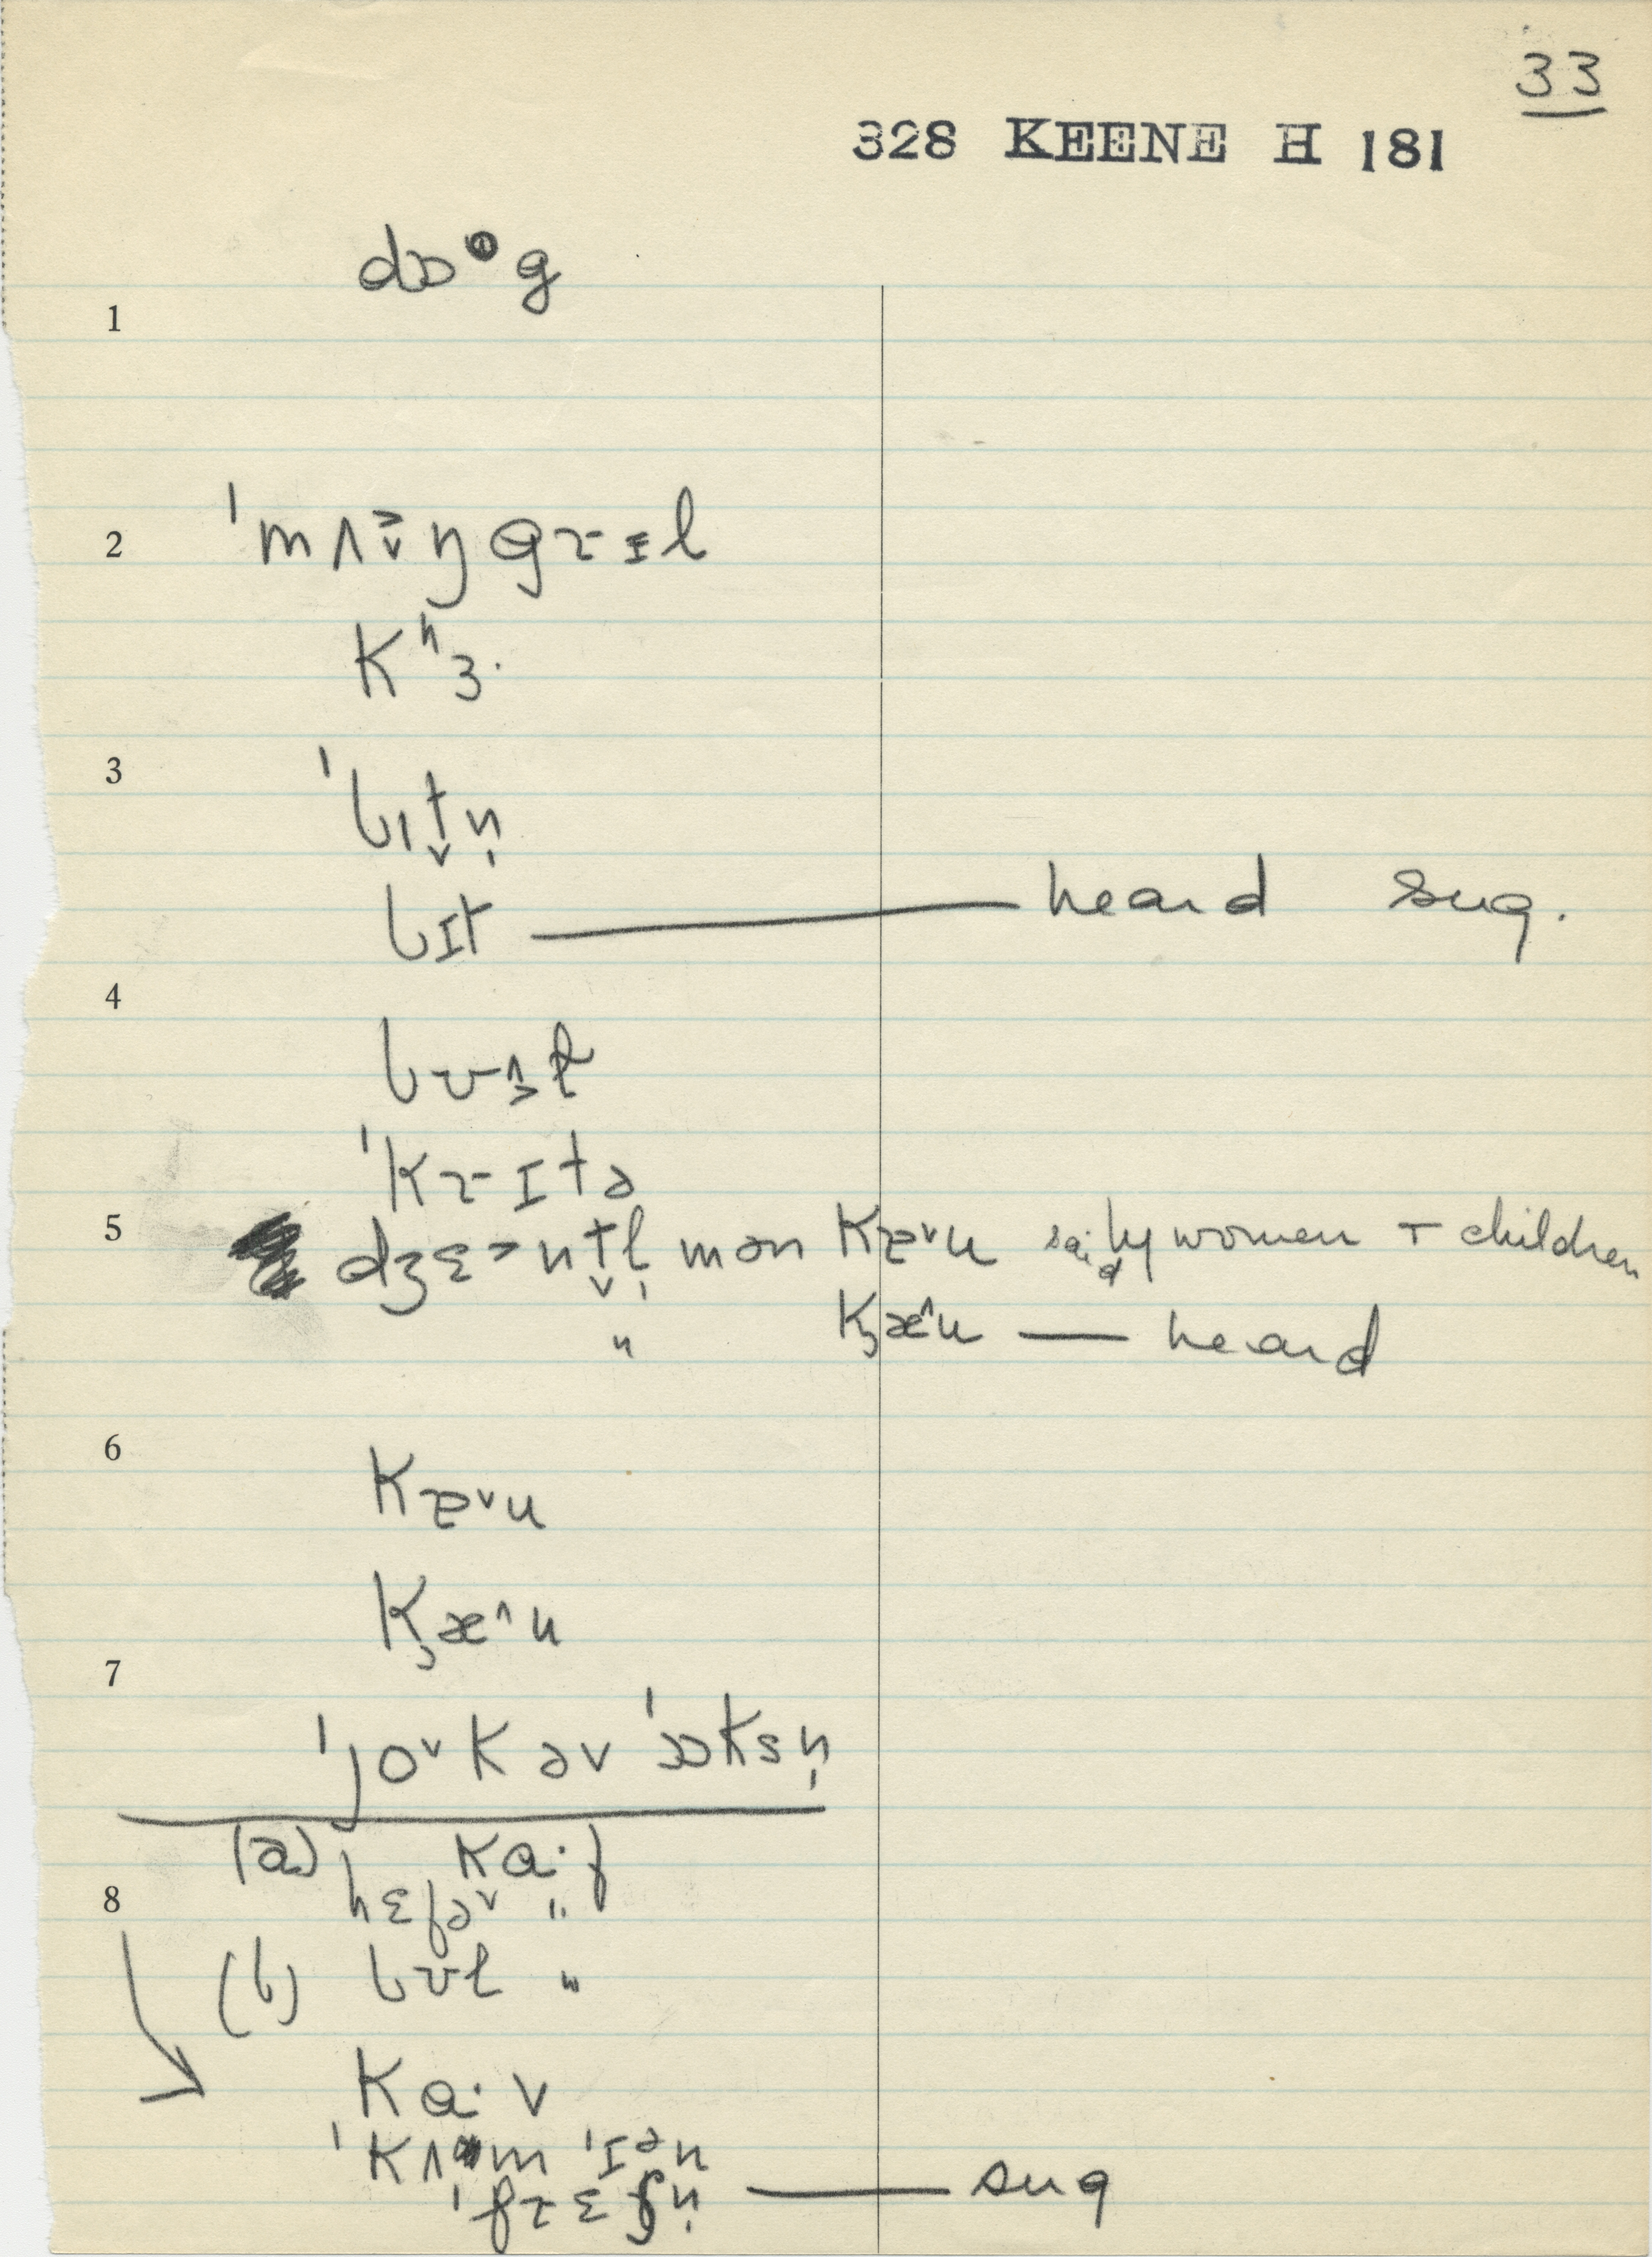 33
328 KEENE H 181
1
dɒ g
2
ˈmʌ˃̬ŋgɹɪl
Kʰɜ·
3
ˈbɪt̬n̩
bɪt — heard sug.
4
bʊ
ˈKɹɪtə
5
dʒɛ˃nt̬l̩mən Kæ˅u said by women + children
〃 K̹æ˄u — heard
6
Kæ˅u
K̹æ˄u
7
ˈjo˅Kəv ˈɒksn̩
(a) Ka·f
8
hɛfə˅ 〃
(b) bʊl 〃
Ka·v
ˈKʌm ˈɪən
ˈfɹɛʃn̩ — sug